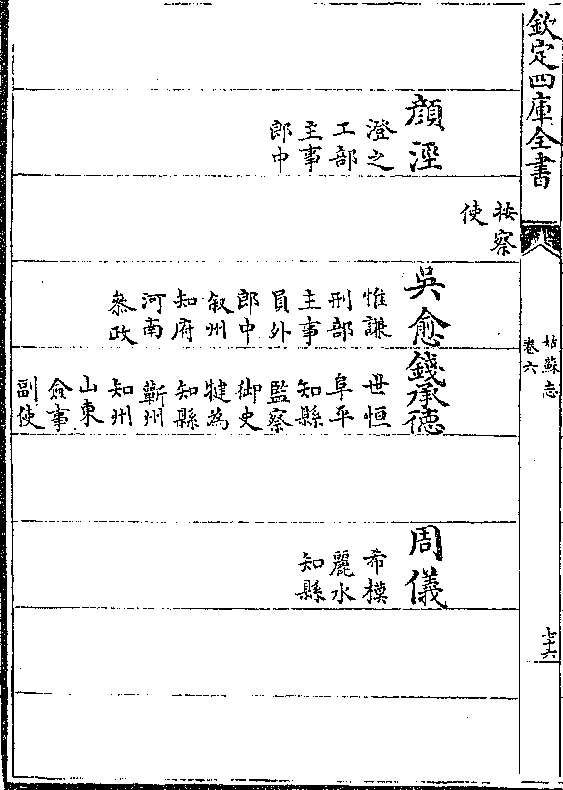 欽定四庫全書
姑蘇志
卷六
七十六
顔涇
澄之
工部
主事
郎中
按察
使
吳愈
惟謙
刑部
主事
員外
郎中
叙州
知府
河南
叅政
錢承德
世恒
阜平
知縣
監察
御史
犍為
知縣
蘄州
知州
山東
僉事
副使
周儀
希模
麗水
知縣